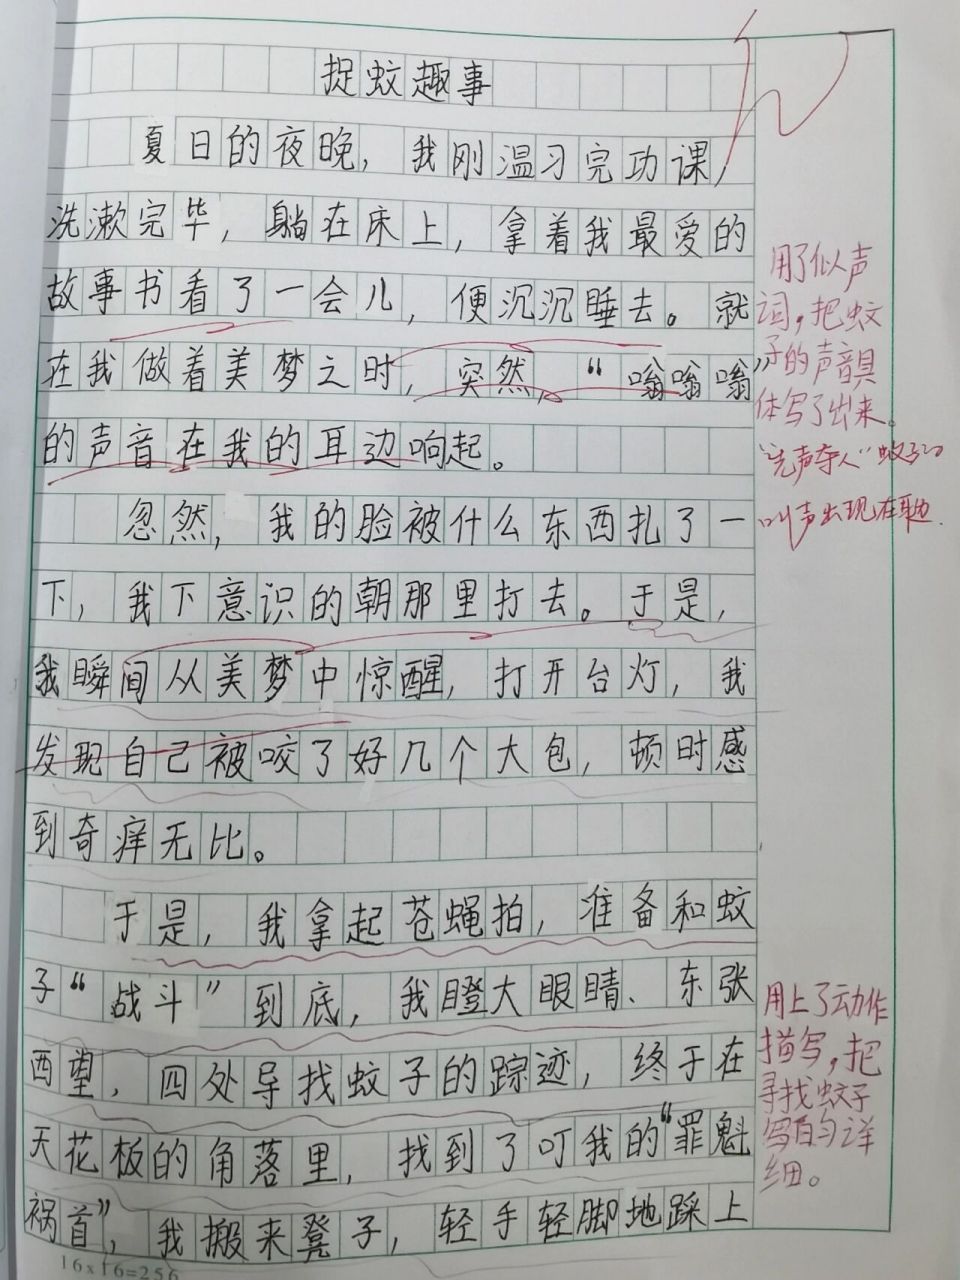 捉蚊趣事
夏日的夜晚，我刚温习完功课，
洗漱完毕，躺在床上，拿着我最爱的
故事书看了一会儿，便沉沉睡去。就
在我做着美梦之时，突然，“嗡嗡嗡”
的声音在我的耳边响起。
忽然，我的脸被什么东西扎了一
下，我下意识的朝那里打去。于是，
我瞬间从美梦中惊醒，打开台灯，我
发现自己被咬了好几个大包，顿时感
到奇痒无比。
于是，我拿起苍蝇拍，准备和蚊
子“战斗”到底，我瞪大眼睛、东张
西望，四处寻找蚊子的踪迹，终于在
天花板的角落里，找到了叮我的“罪魁
祸首”，我搬来凳子，轻手轻脚地踩上
用了似声
词，把蚊
子的声音具
体写了出来。
“先声夺人”蚊子的
叫声出现在耳边.
用上了动作
描写，把
寻找蚊子
写的详
细。
16×16=256